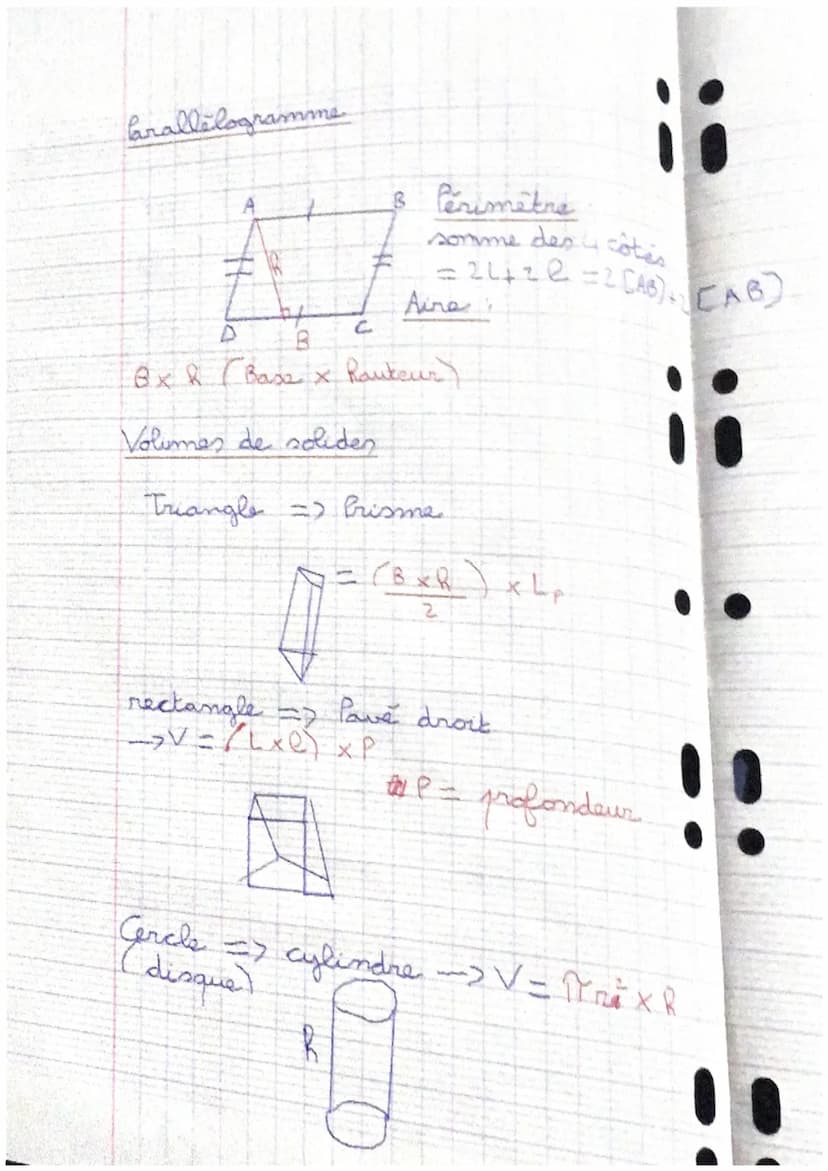 Parallélogramme
A B
h
D B C
Périmètre
somme des 4 côtés
= 2L + 2l = 2[AB] + 2[AB]
Aire :
B x h (Base x hauteur)
Volumes de solides
Triangle => Prisme
= (B x h / 2) x Lp
rectangle => Pavé droit
-> V = (L x l) x P
P = profondeur
Cercle => cylindre -> V = πr² x h
(disque)
h